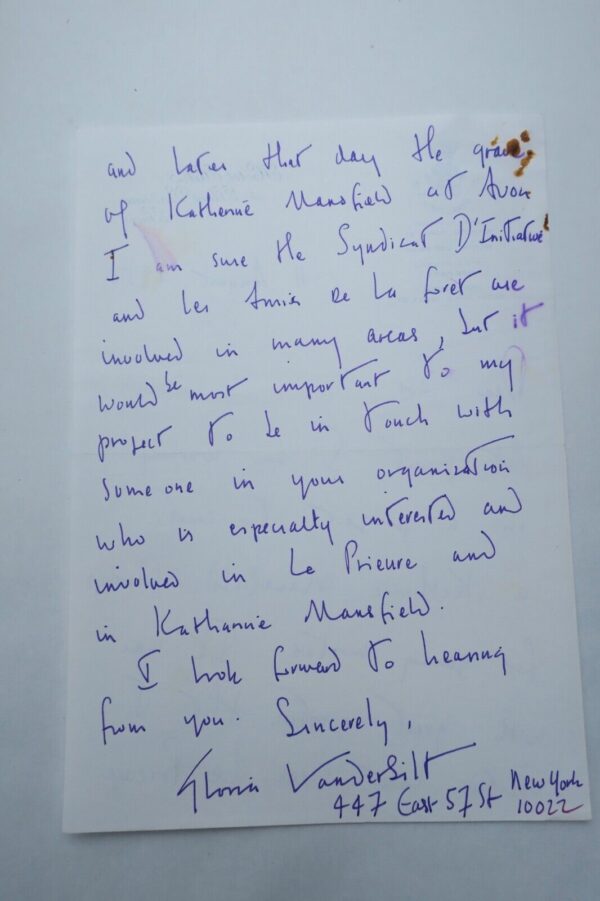 and later that day the grave
of Katherine Mansfield at Avon
I am sure the Syndicat D'Initiative
and Les Amis De La Foret are
involved in many areas, but it
would be most important to my
project to be in touch with
someone in your organization
who is especialty interested and
involved in Le Prieure and
in Katharine Mansfield.
I look forward to hearing
from you. Sincerely,
Gloria Vanderbilt
447 East 57 St New York
10022